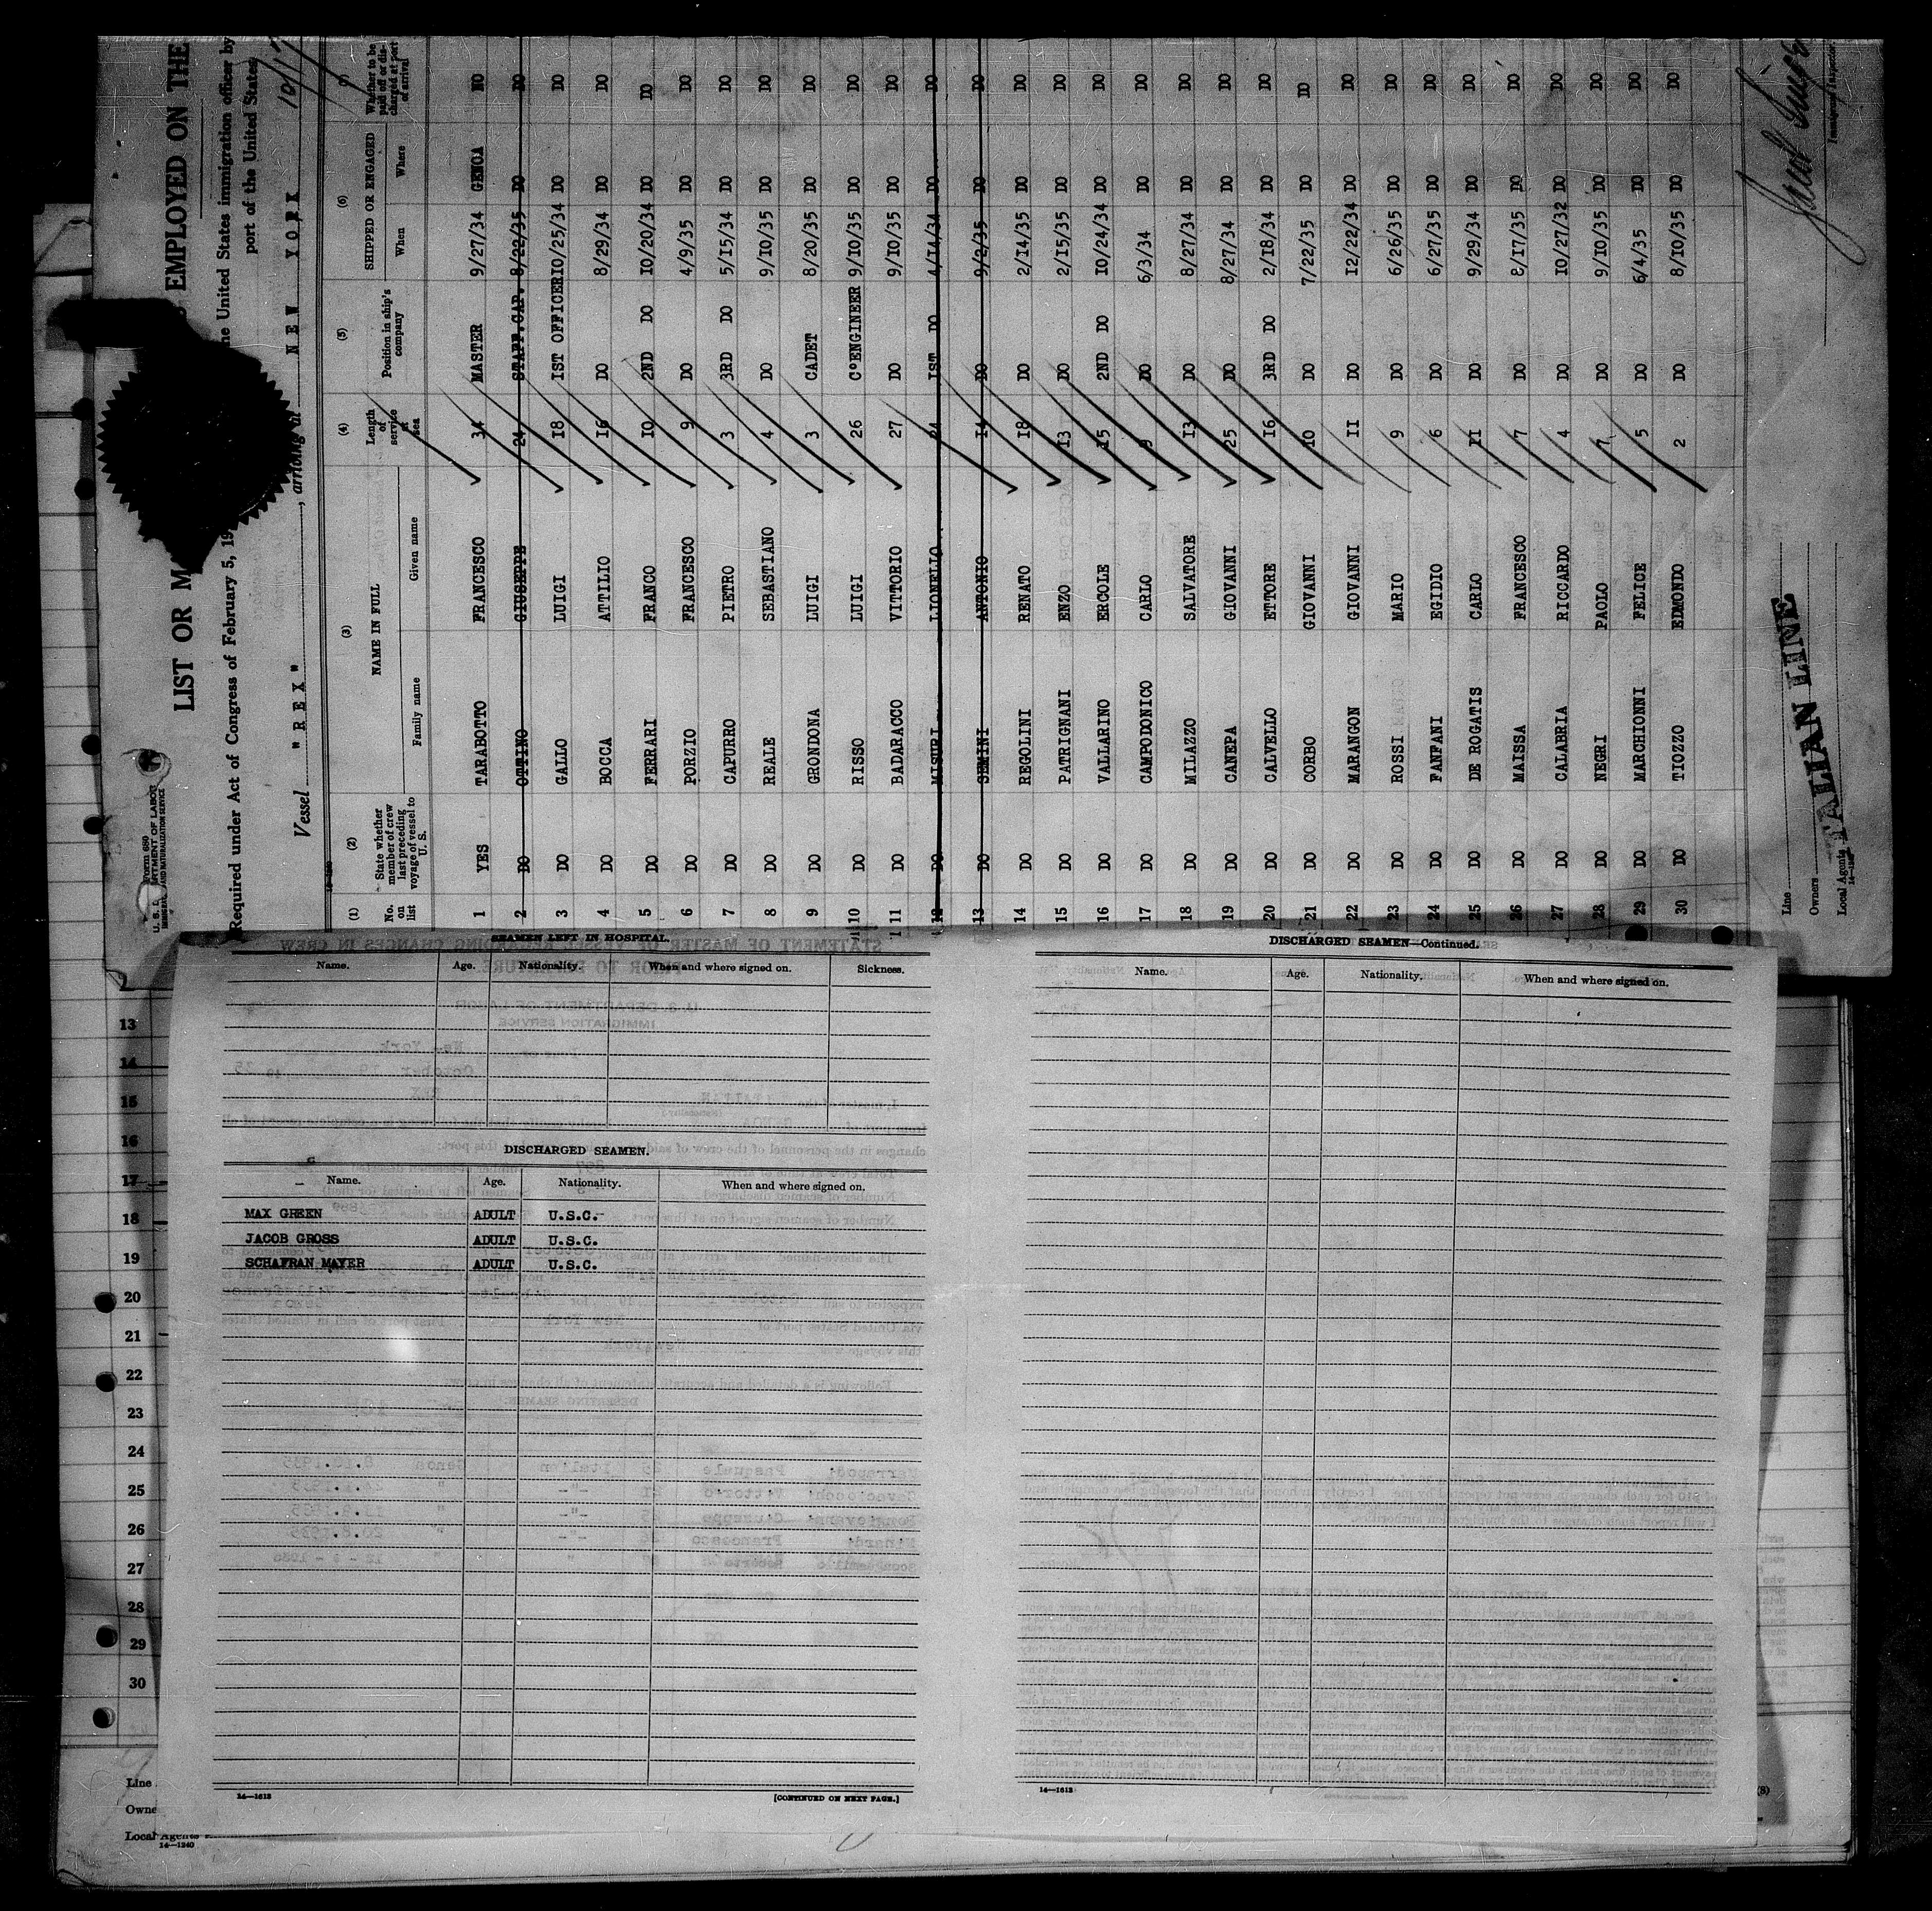 Form 680
U. S. DEPARTMENT OF LABOR
IMMIGRATION AND NATURALIZATION SERVICE
LIST OR EMPLOYED ON THE
Required under Act of Congress of February 5, 19 the United States immigration officer by
port of the United States
Vessel "REX", arriving at NEW YORK
(1) (2) (3) (4) (5) (6)
No. on list State whether member of crew last preceding voyage of vessel to U. S. NAME IN FULL Length of service at sea Position in ship's company SHIPPED OR ENGAGED Whether to be paid off or discharged at port of arrival
Family name Given name When Where
1 YES TARABOTTO FRANCESCO 34 MASTER 9/27/34 GENOA NO
2 DO OTTINO GIUSEPPE 24 STAFF.CAP. 8/22/35 DO DO
3 DO GALLO LUIGI 18 IST OFFICER 10/25/34 DO DO
4 DO BOCCA ATTILIO 16 DO 8/29/34 DO DO
5 DO FERRARI FRANCO 10 2ND DO 10/20/34 DO DO
6 DO PORZIO FRANCESCO 9 DO 4/9/35 DO DO
7 DO CAPURRO PIETRO 3 3RD DO 5/15/34 DO DO
8 DO REALE SEBASTIANO 4 DO 9/10/35 DO DO
9 DO GRONDONA LUIGI 3 CADET 8/20/35 DO DO
10 DO RISSO LUIGI 26 C°ENGINEER 9/10/35 DO DO
11 DO BADARACCO VITTORIO 27 DO 9/10/35 DO DO
12 DO MISURI LIONELLO 24 IST DO 4/14/34 DO DO
13 DO SEMINI ANTONIO 14 DO 9/2/35 DO DO
14 DO REGOLINI RENATO 18 DO 2/14/35 DO DO
15 DO PATRIGNANI ENZO 13 DO 2/15/35 DO DO
16 DO VALLARINO ERCOLE 15 2ND DO 10/24/34 DO DO
17 DO CAMPODONICO CARLO 9 DO 6/3/34 DO DO
18 DO MILAZZO SALVATORE 13 DO 8/27/34 DO DO
19 DO CANEPA GIOVANNI 25 DO 8/27/34 DO DO
20 DO CALVELLO ETTORE 16 3RD DO 2/18/34 DO DO
21 DO CORBO GIOVANNI 10 DO 7/22/35 DO DO
22 DO MARANGON GIOVANNI 11 DO 12/22/34 DO DO
23 DO ROSSI MARIO 9 DO 6/26/35 DO DO
24 DO FANFANI EGIDIO 6 DO 6/27/35 DO DO
25 DO DE ROGATIS CARLO 11 DO 9/29/34 DO DO
26 DO MAISSA FRANCESCO 7 DO 8/17/35 DO DO
27 DO CALABRIA RICCARDO 4 DO 10/27/32 DO DO
28 DO NEGRI PAOLO 7 DO 9/10/35 DO DO
29 DO MARCHIONNI FELICE 5 DO 6/4/35 DO DO
30 DO TIOZZO EDMONDO 2 DO 8/10/35 DO DO
Line
Owners
Local Agents ITALIAN LINE
Immigrant Inspector.
SEAMEN LEFT IN HOSPITAL.
Name. Age. Nationality. When and where signed on. Sickness.
DISCHARGED SEAMEN.
Name. Age. Nationality. When and where signed on.
MAX GREEN ADULT U.S.C.
JACOB GROSS ADULT U.S.C.
SCHAFRAN MAYER ADULT U.S.C.
14—1613
[CONTINUED ON NEXT PAGE.]
DISCHARGED SEAMEN—Continued.
Name. Age. Nationality. When and where signed on.
14—1613
13
14
15
16
17
18
19
20
21
22
23
24
25
26
27
28
29
30
Line
Owne
Local Agents
14—1240